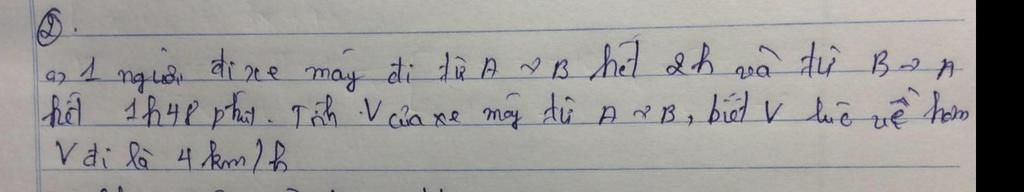 ②.
a, 1 người đi xe máy đi từ A → B hết 2h và từ B → A
hết 1h48 phút. Tính V của xe máy từ A → B, biết V lúc về hơn
V đi là 4 km/h